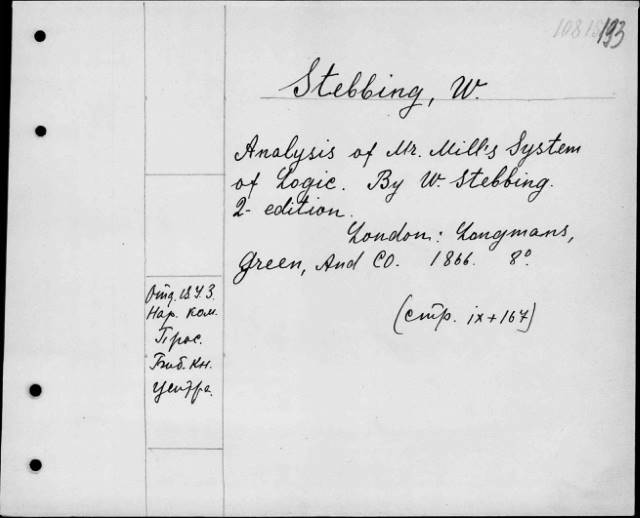 193
Stebbing, W.
Analysis of Mr. Mill's System
of Logic. By W. Stebbing.
2- edition.
London: Longmans,
Green, And CO. 1866. 8º.
(стр. ix+167)
Нар. Ком.
Прос.
Библ. Кн.
Центра.